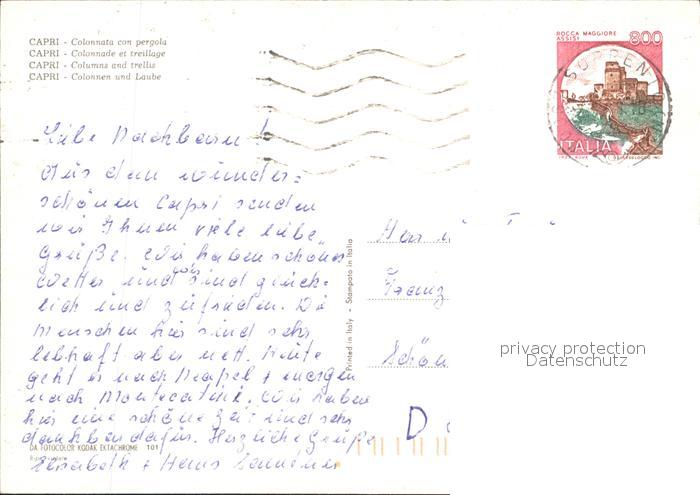 CAPRI - Colonnata con pergola
CAPRI - Colonnade et treillage
CAPRI - Columns and trellis
CAPRI - Colonnen und Laube
ROCCA MAGGIORE
ASSISI
800
ITALIA
Liebe Nachbarn!
Aus dem wunder=
schönen Capri senden
wir Ihnen viele liebe
Grüße. Wir haben schönes
Wetter und wir sind glück-
lich und zufrieden. Die
Menschen hier sind sehr
lebhaft aber nett. Heute
geht es nach Neapel + morgen
nach Montecatini. Wir haben
hier eine schöne Zeit und sehr
dankbar dafür. Herzliche Grüße
Elisabeth + Hans
Printed in Italy - Stampato in Italia
Franz
Schön
D
privacy protection
Datenschutz
DA FOTOCOLOR KODAK EKTACHROME 101